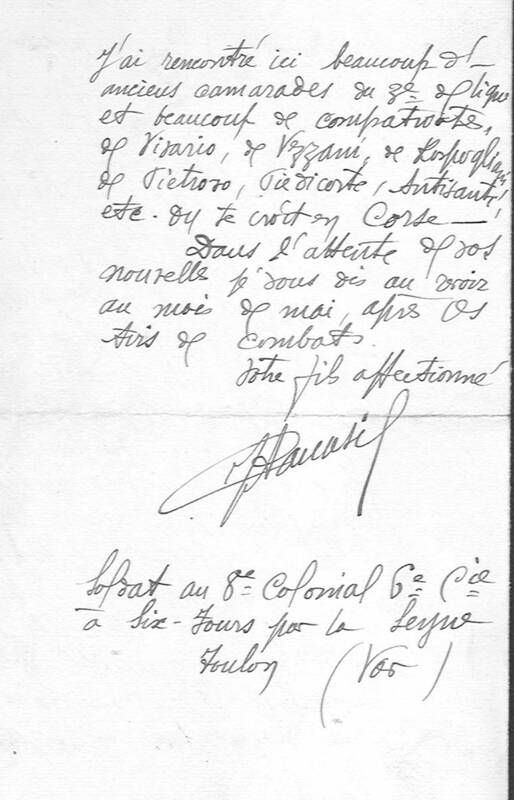 J'ai rencontré ici beaucoup d'-
anciens camarades du 3e de ligne
et beaucoup de compatriotes,
de Vivario, de Vezzani, de Rospogliani,
de Pietroso, Piedicorte, Antisanti,
etc. On se croit en Corse —
Dans l'attente de vos
nouvelle je vous dis au revoir
au mois de mai, après les
tirs de combats.
Votre fils affectionné
Soldat au 8e Colonial 6e Cie
à Six-Fours par la Seyne
Toulon (Var)